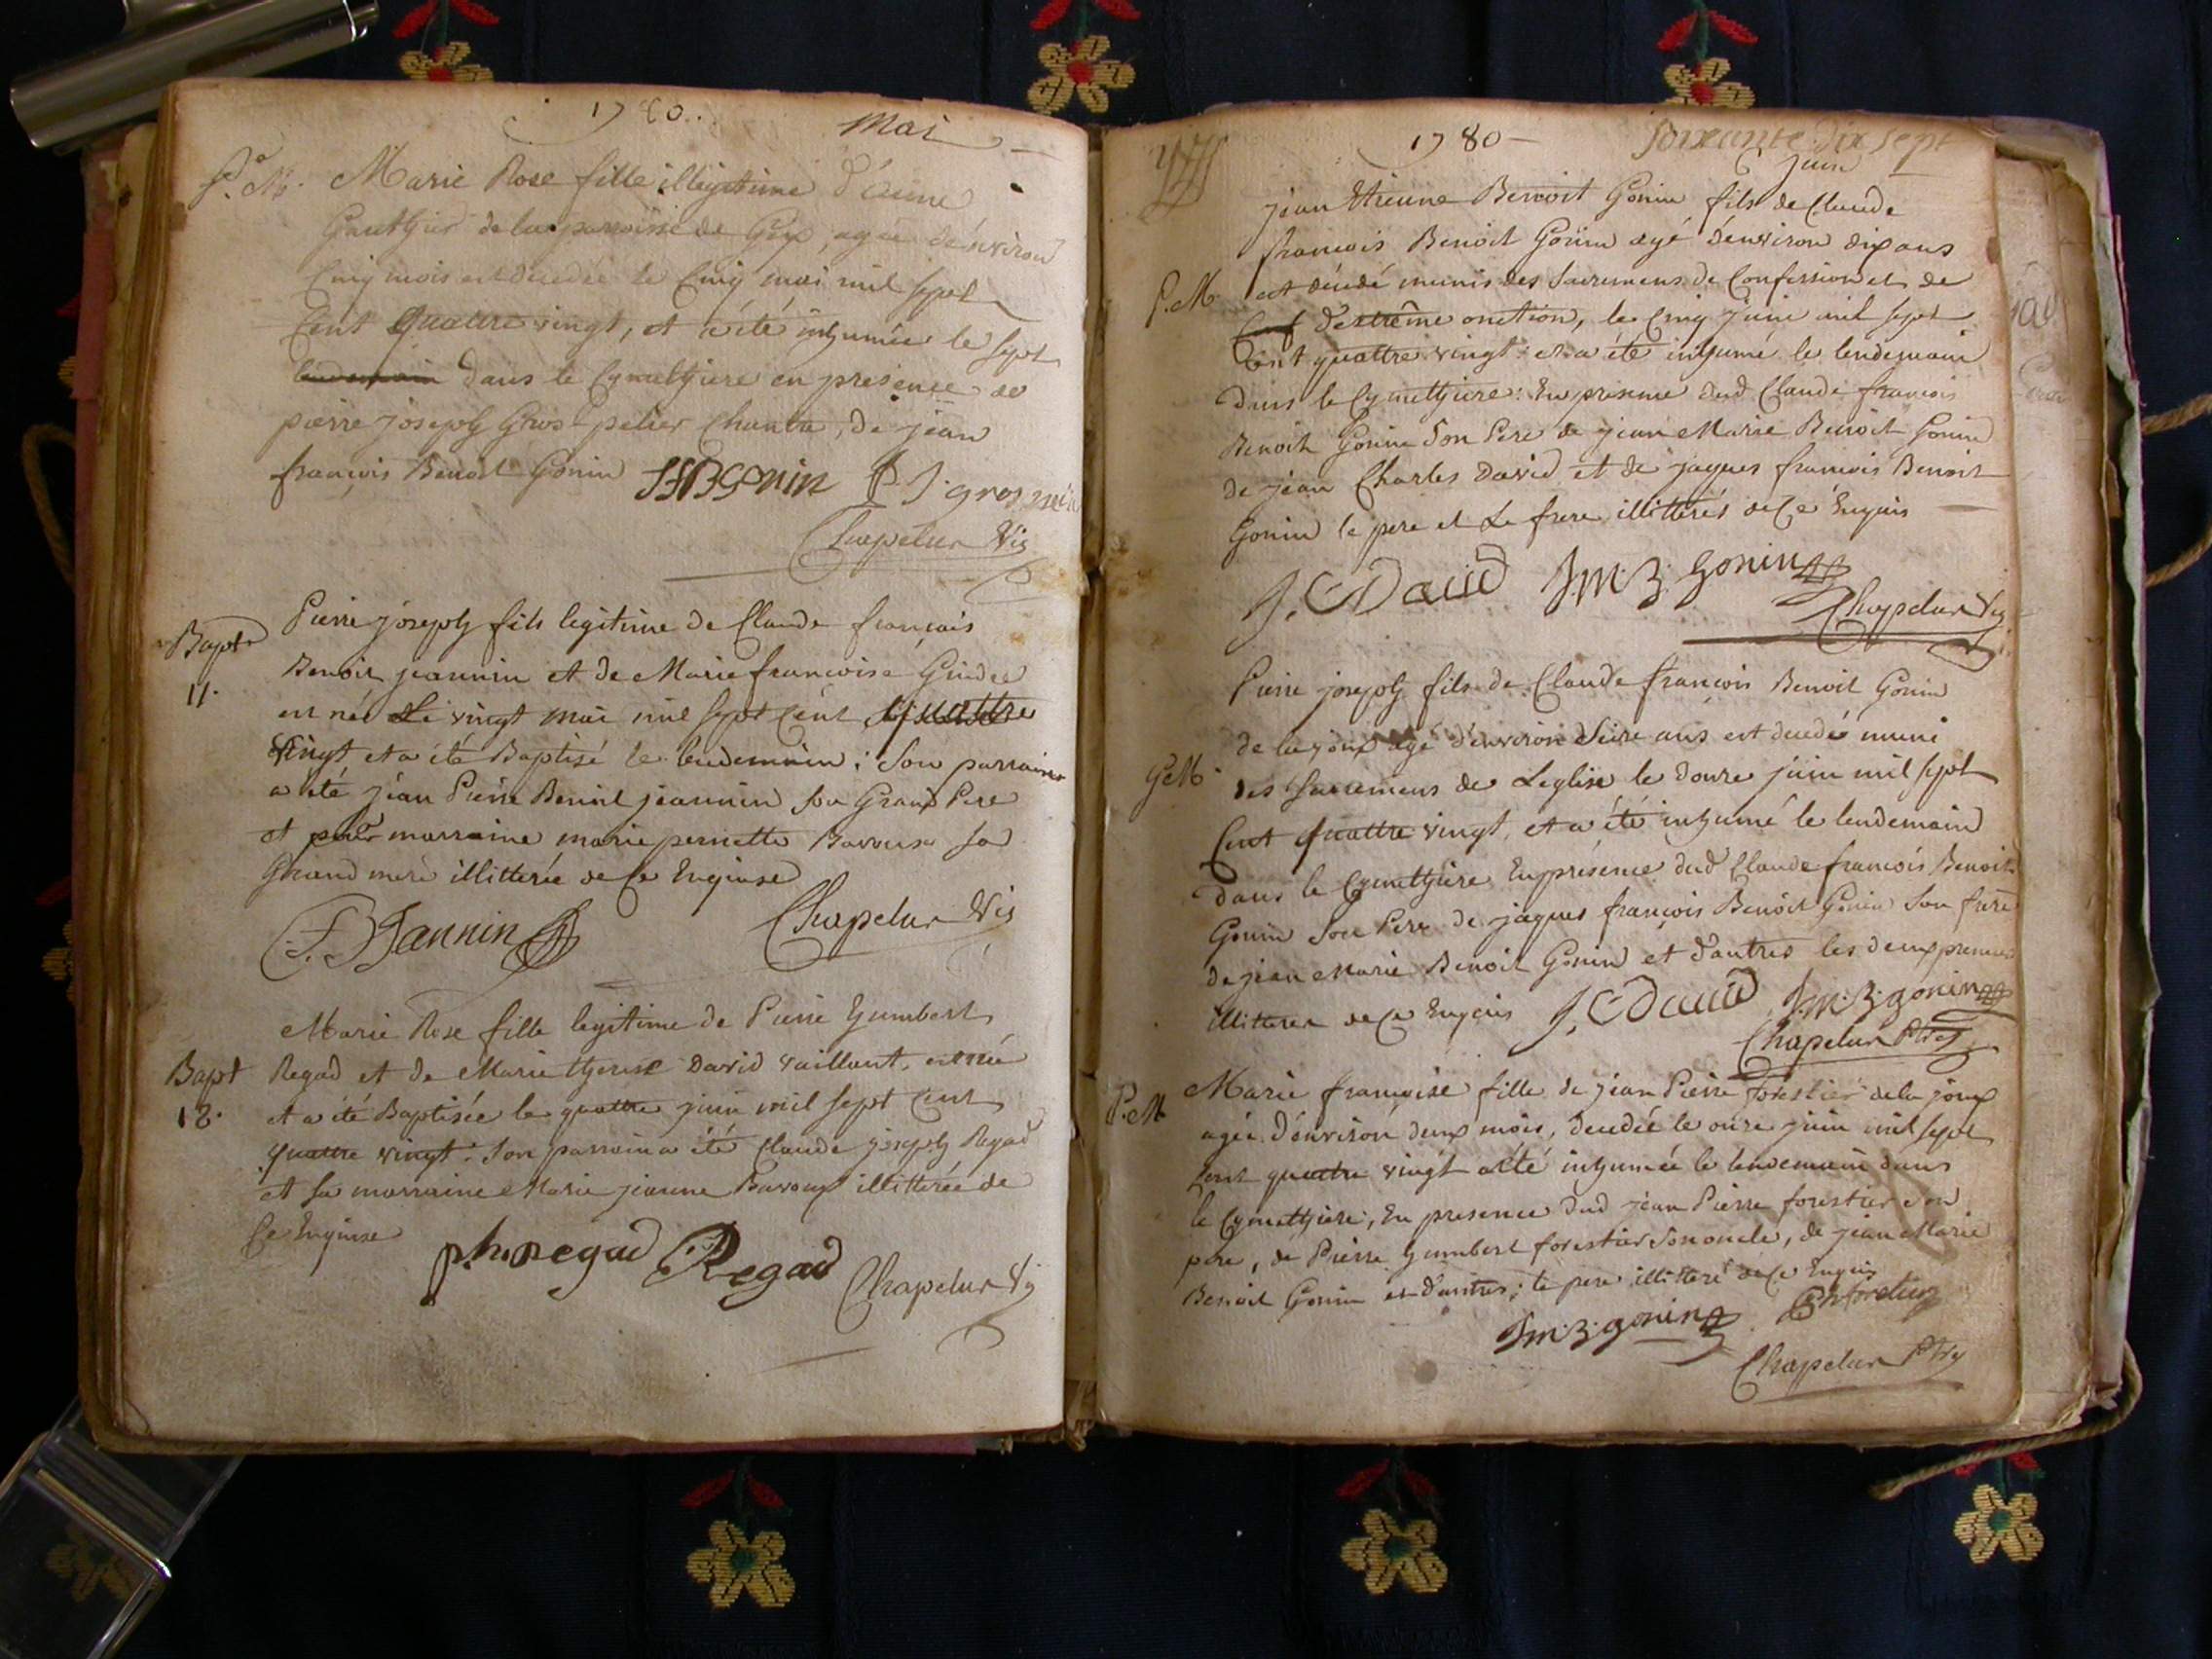 1780..
Mai
P. M. Marie Rose fille illegitime d'anne
Gauthier de la parroisse de Gex, agée d'environ
Cinq mois est decedée le Cinq mai mil sept
Cent quattre vingt, et a été inhumée le sept
lendemain dans le Cymethiere en presence de
pierre joseph Gros-pelier Chantre, de jean
françois Benoit Gonin JFBGonin P J. gros
Chapelur Vic
Bapt
11.
Pierre joseph fils legitime de Claude francois
Benoit jeannin et de Marie francoise Gindre
est née Le vingt mai mil sept Cent quattre
Vingt et a été Baptisé le lendemain: Son parrain
a été jean Pierre Benoit jeannin son Grand Pere
et pour marraine marie pernette Bavoux sa
Grand mere illitterée de Ce Enquise
Jannin Chapelur Vic
Bapt
12.
Marie Rose fille legitime de Pierre humbert
Regad et de Marie therese David vaillant, est née
et a été Baptisée le quattre juin mil sept Cent
quattre vingt. Son parrain a été Claude joseph Regad
et sa marraine Marie jeanne Bavoux illitterée de
Ce Enquise
ph. Regad Regad Chapelur
1780 -
soixante dix sept
juin
jean Etienne Benoit Gonin fils de Claude
francois Benoit Gonin agé d'environ dix ans
P. M. est décédé munis des Sacremens de Confession et de
d'extrême onction, le Cinq juin mil sept
Cent quattre vingt et a été inhumé le lendemain
dans le Cymethiere: En presence dud Claude francois
Benoit Gonin Son Pere de jean Marie Benoit Gonin
de jean Charles David et de jaques francois Benoit
Gonin le pere et Le frere illitterés de Ce Enquis
J. C David J.m. B. gonin
Chapelur
Pierre joseph fils de Claude françois Benoit Gonin
de la joux agé d'environ Seize ans est decedé muni
des Sacremens de Leglise le douze juin mil sept
Cent quattre vingt, et a été inhumé le lendemain
dans le Cymethiere En présence dud Claude francois Benoit
Gonin Son Pere de jaques françois Benoit Gonin Son frere
de jean Marie Benoit Gonin et d'autres les deux premiers
illitterés de Ce Enquis J. C David J.m. B. gonin
Chapelur
P. M. Marie françoise fille de jean Pierre forestier de la joux
agée d'environ deux mois, decedée le onze juin mil sept
Cent quattre vingt a été inhumée le lendemain dans
le Cymethiere, En presence dud jean Pierre forestier Son
pere, de Pierre humbert forestier Son oncle, de jean Marie
Benoit Gonin et d'autres; le pere illitteré de Ce Enquis
J.m. B. gonin
Chapelur